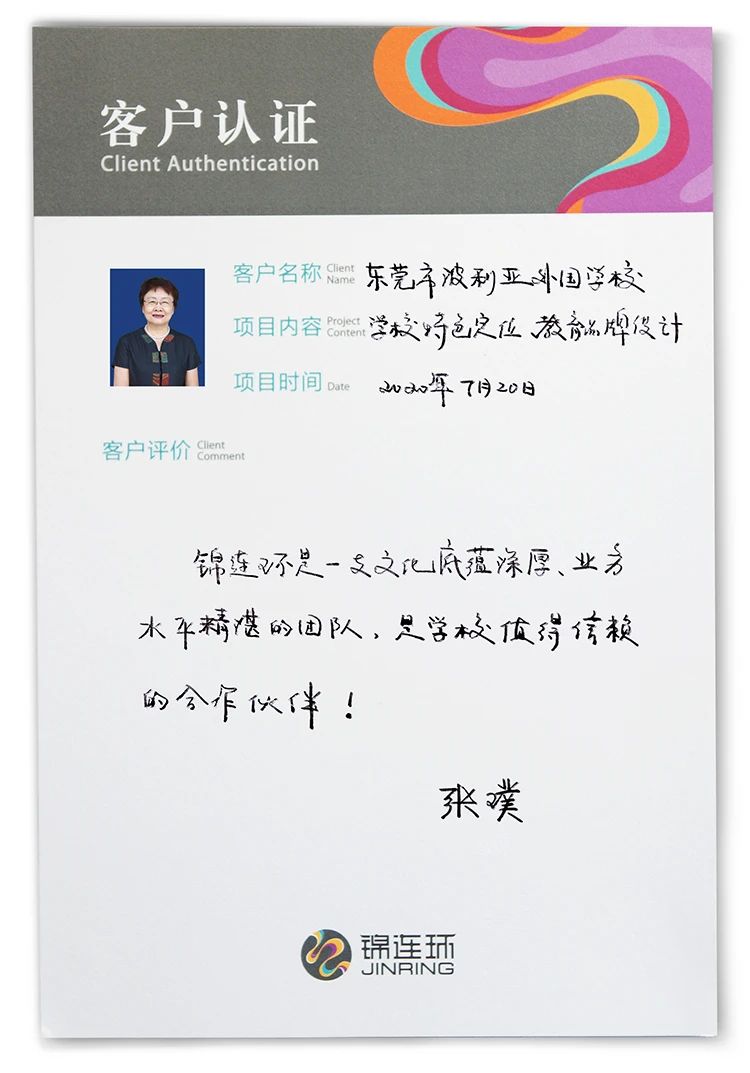 客户认证
Client Authentication
客户名称 Client Name 东莞市波利亚外国学校
项目内容 Project Content 学校特色定位、教育品牌设计
项目时间 Date 2020年7月20日
客户评价 Client Comment
锦连环是一支文化底蕴深厚、业务
水平精湛的团队，是学校值得信赖
的合作伙伴！
张璞
锦连环
JINRING